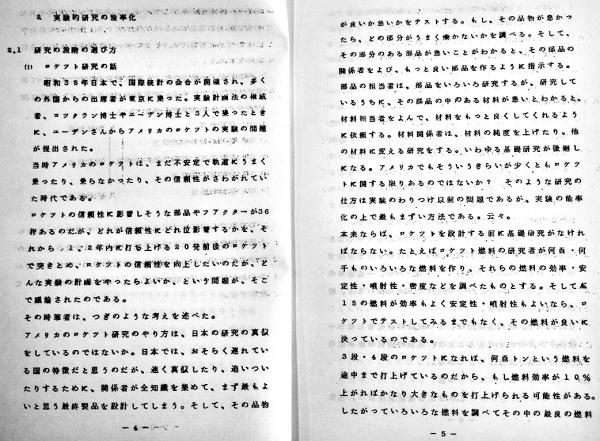 2 実験的研究の能率化
2.1 研究の段階の選び方
(1) ロケット研究の話
昭和35年日本で、国際統計の会合が開催され、多く
の外国からの出席者が東京に集った。実験計画法の権威
者、コックラン博士やユーデン博士と3人で集ったとき
に、ユーデンさんからアメリカのロケットの実験の問題
が提出された。
当時アメリカのロケットは、まだ不安定で軌道にうまく
乗ったり、乗らなかったり、その信頼性がさわがれてい
た時代である。
ロケットの信頼性に影響しそうな部品やファクターが36
程あるのだが、どれが信頼性にどれ位影響するかを、そ
れから 、2年内に打ち上げる20発前後のロケット
で突きとめ、ロケットの信頼性を向上したいのだが、ど
んな実験の計画をやったらよいか、という問題が、そこ
で議論されたのである。
その時筆者は、つぎのような考えを述べた。
アメリカのロケット研究のやり方は、日本の研究の真似
をしているのではないか。日本では、おそらく遅れてい
る国の特徴だと思うのだが、速く真似したり、追いつい
たりするために、関係者が全知識を集めて、まず最もよ
いと思う最終製品を設計してしまう。そして、その品物
－4－
が良いか悪いかをテストする。もし、その品物が悪かっ
たら、どの部分がうまく働かないかを調べる。そして、
その部分のある部品が悪いことがわかると、その部品の
関係者をよび、もっと良い部品を作るように指示する。
部品の担当者は、部品をいろいろ研究するが、研究して
いるうちに、その部品の中のある材料が悪いとわかると、
材料担当者をよんで、材料をもっと良くしてくれるよう
に依頼する。材料関係者は、材料の純度を上げたり、他
の材料に変える研究をする。いわゆる基礎研究が後廻し
になる。アメリカでもそういうきらいが少くともロケッ
トに関する限りあるのではないか? そのような研究の
仕方は実験のわりつけ以前の問題であるが、実験の能率
化の上で最もまずい方法である。云々。
本来ならば、ロケットを設計する前に基礎研究がなけれ
ばならない。たとえばロケット燃料の研究者が何百・何
千ものいろいろな燃料を作り、それらの燃料の効率・安
定性・噴射性・密度などを調べたものとする。そしてA
15の燃料が効率もよく安定性・噴射性もよいなら、ロ
ケットでテストしてみるまでもなく、その燃料が良いに
決っているのである。
3段・4段のロケットになれば、何百トンという燃料を
途中まで打上げているのだから、もし燃料効率が10%
上がればかなり大きなものを打上げられる可能性がある。
したがっていろいろな燃料を調べてその中の最良の燃料
－5－